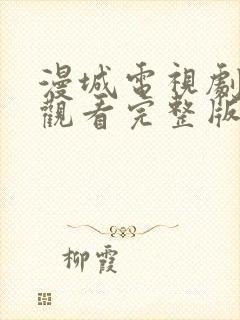 漫城電視劇
觀看完整版
柳霞